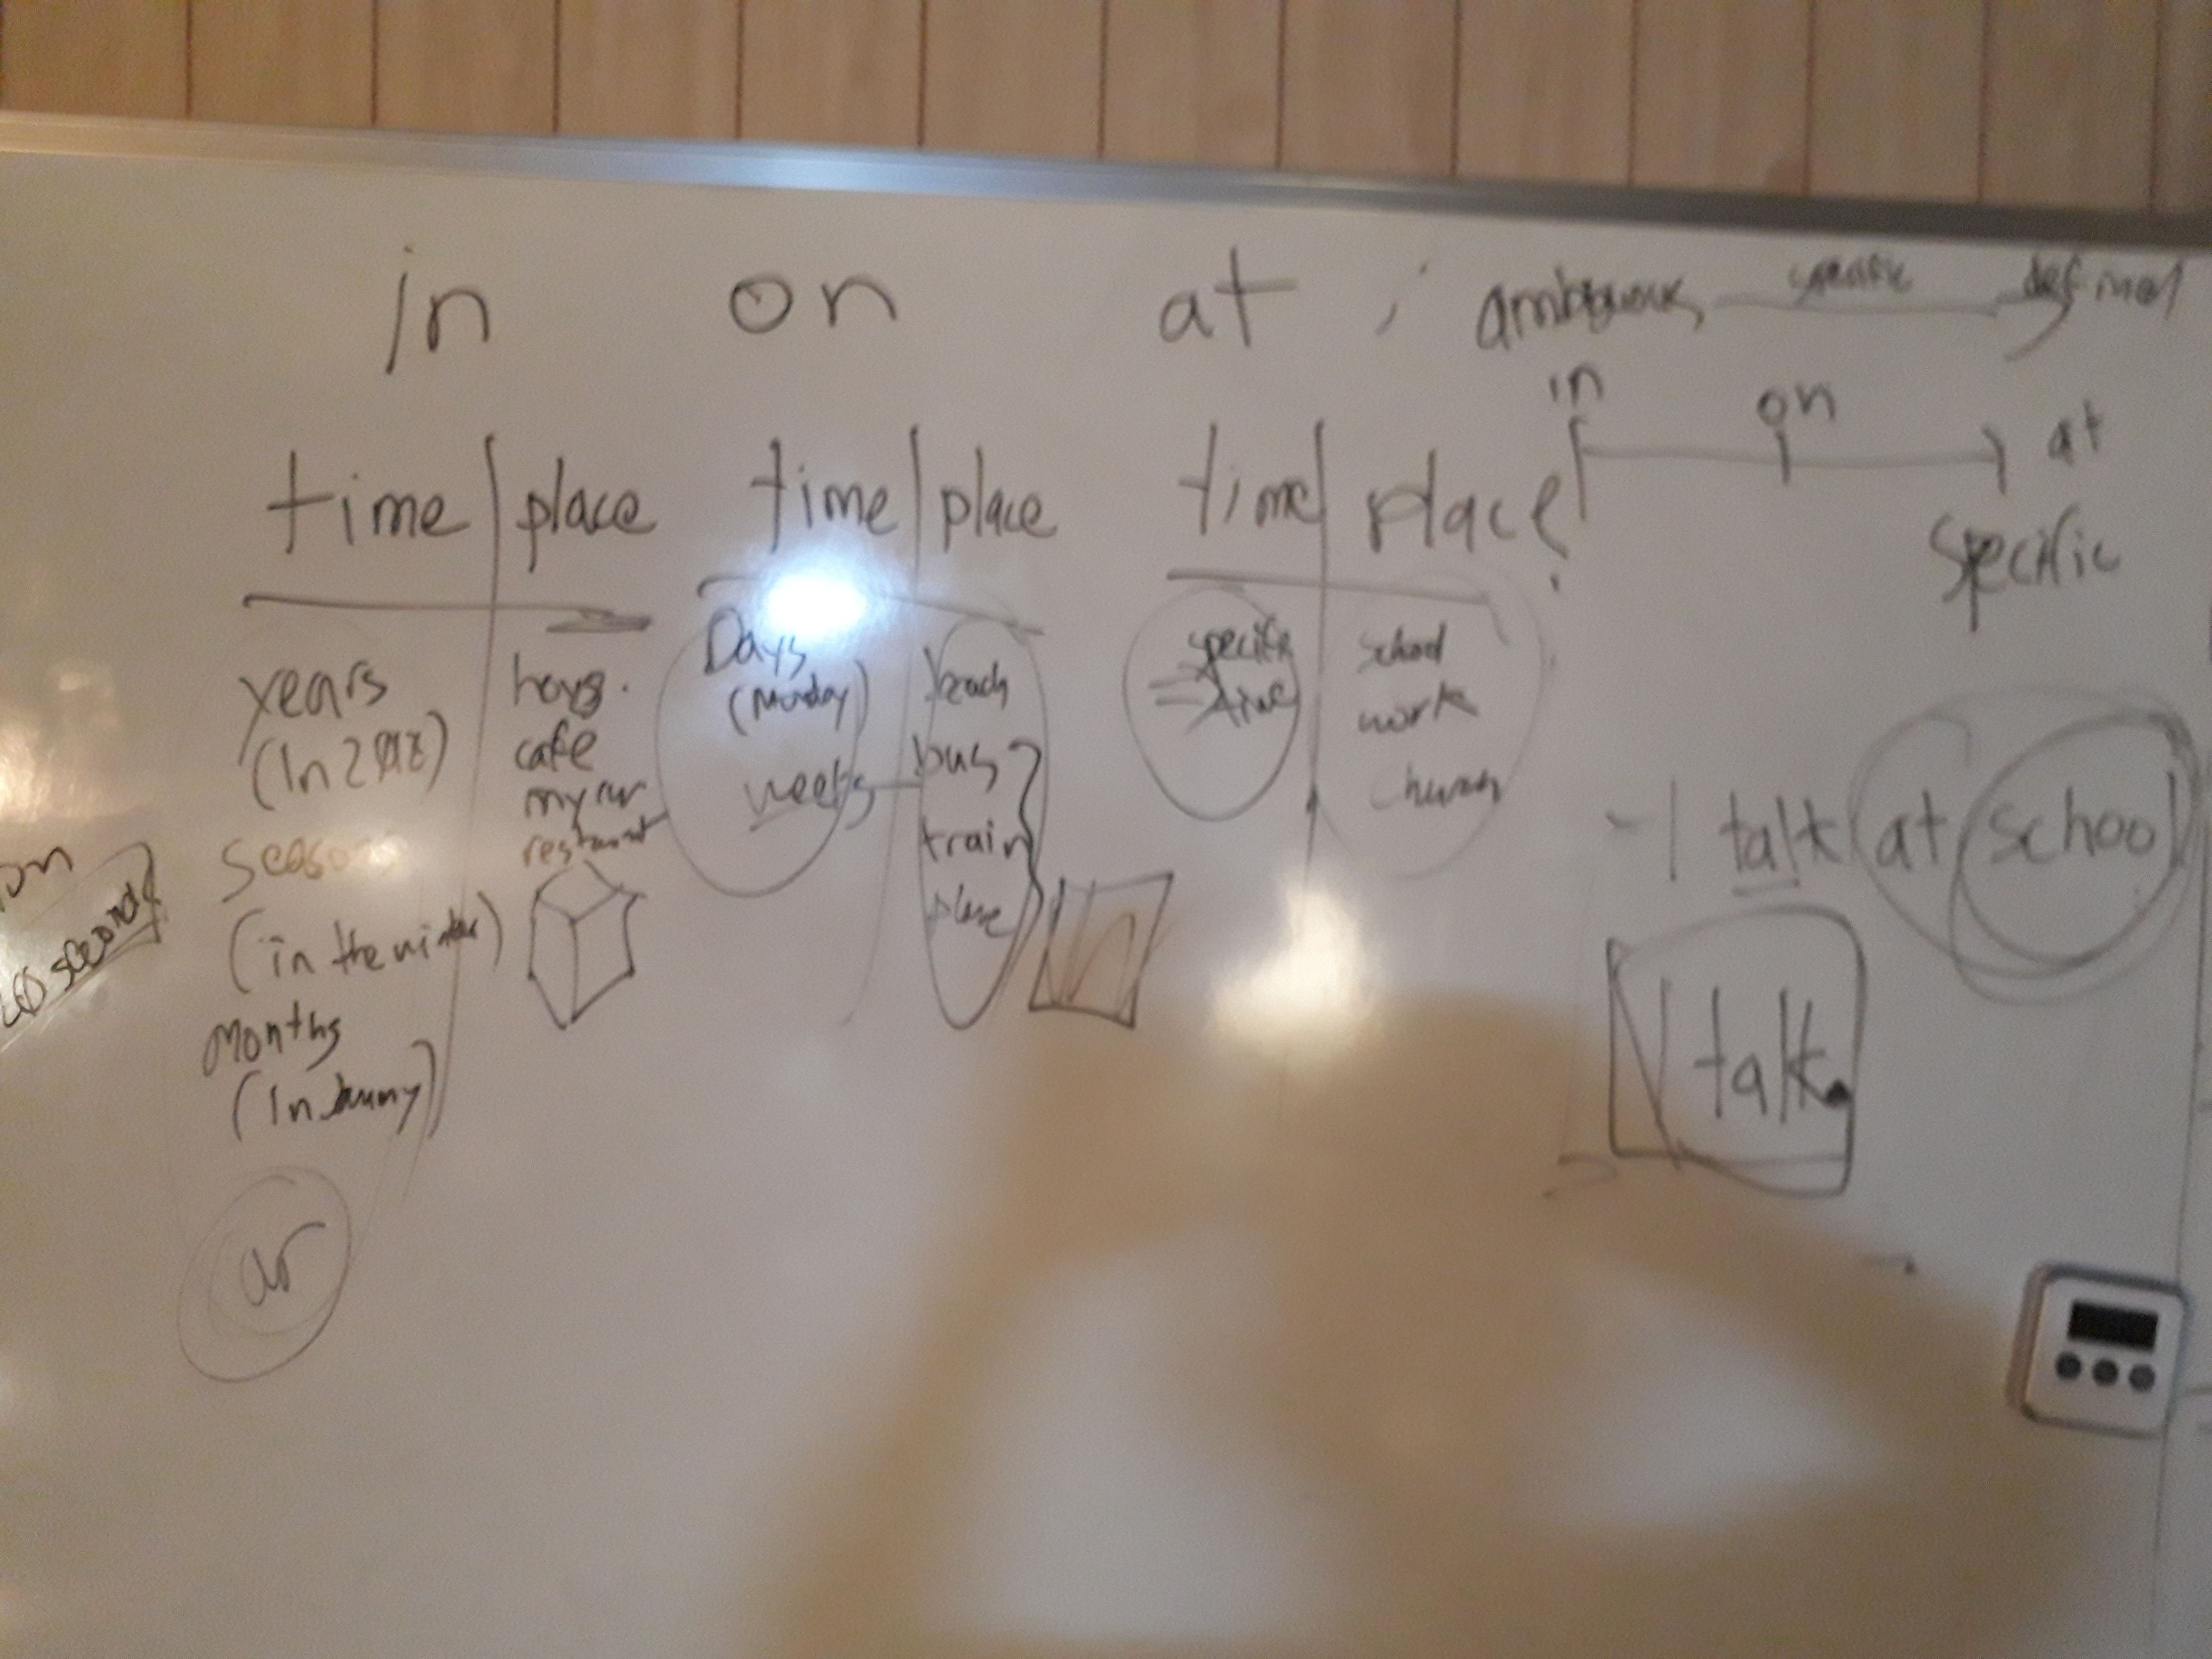 in on at ; ambiguous specific defined
in on at
specific
time place
years
(In
seasons
(in the winter)
months
(In January)
place
cafe
my car
restaurant
time place
Days
(Monday)
weeks
beach
bus
train
plane
time place
specific
time
school
work
church
- I talk at school
I talk.
on
seconds